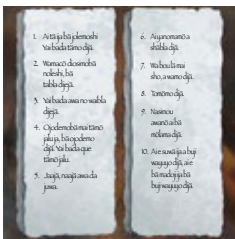 1. Aitäija bä jolemoshi
Yaibada tämo dijä.
2. Wamacö diosimobä
noleshi, bä
tabla dijejä.
3. Yaibada awa no wabla
dijejä.
4. Ojodemobä mai tämo
jalu ja, bä ojodemo
dijä. Yaibada que
tämo jalu.
5. Jaajä, naajä awa da
juwa.
6. Ai yanomanö a
shabla dijä.
7. Wa bou lä mai
sho, a wamo dijä.
8. Tomömo dijä.
9. Nasimou
awanö ai bä
mölama dijä.
10. Ai e suwä ja a buji
wayuyo dijä, ai e
bä madoji ja bä
buji wayuyo dijä.